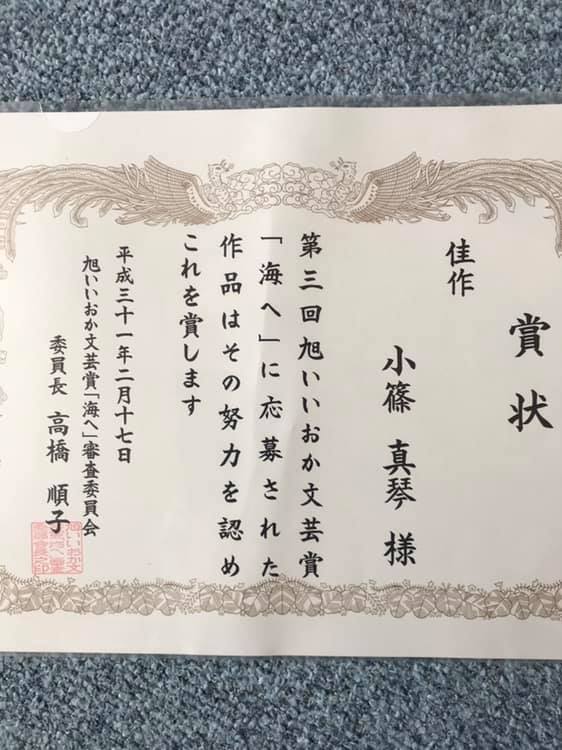 賞状
佳作
小篠 真琴 様
第三回旭いいおか文芸賞
「海へ」に応募された
作品はその努力を認め
これを賞します
平成三十一年二月十七日
旭いいおか文芸賞「海へ」審査委員会
委員長 高橋 順子